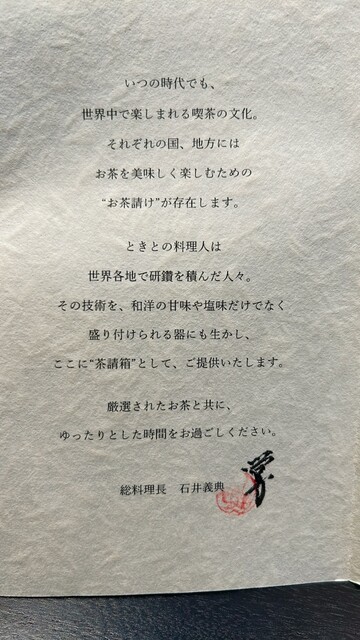 いつの時代でも、
世界中で楽しまれる喫茶の文化。
それぞれの国、地方には
お茶を美味しく楽しむための
“お茶請け”が存在します。
ときとの料理人は
世界各地で研鑽を積んだ人々。
その技術を、和洋の甘味や塩味だけでなく
盛り付けられる器にも生かし、
ここに“茶請箱”として、ご提供いたします。
厳選されたお茶と共に、
ゆったりとした時間をお過ごしください。
総料理長 石井義典